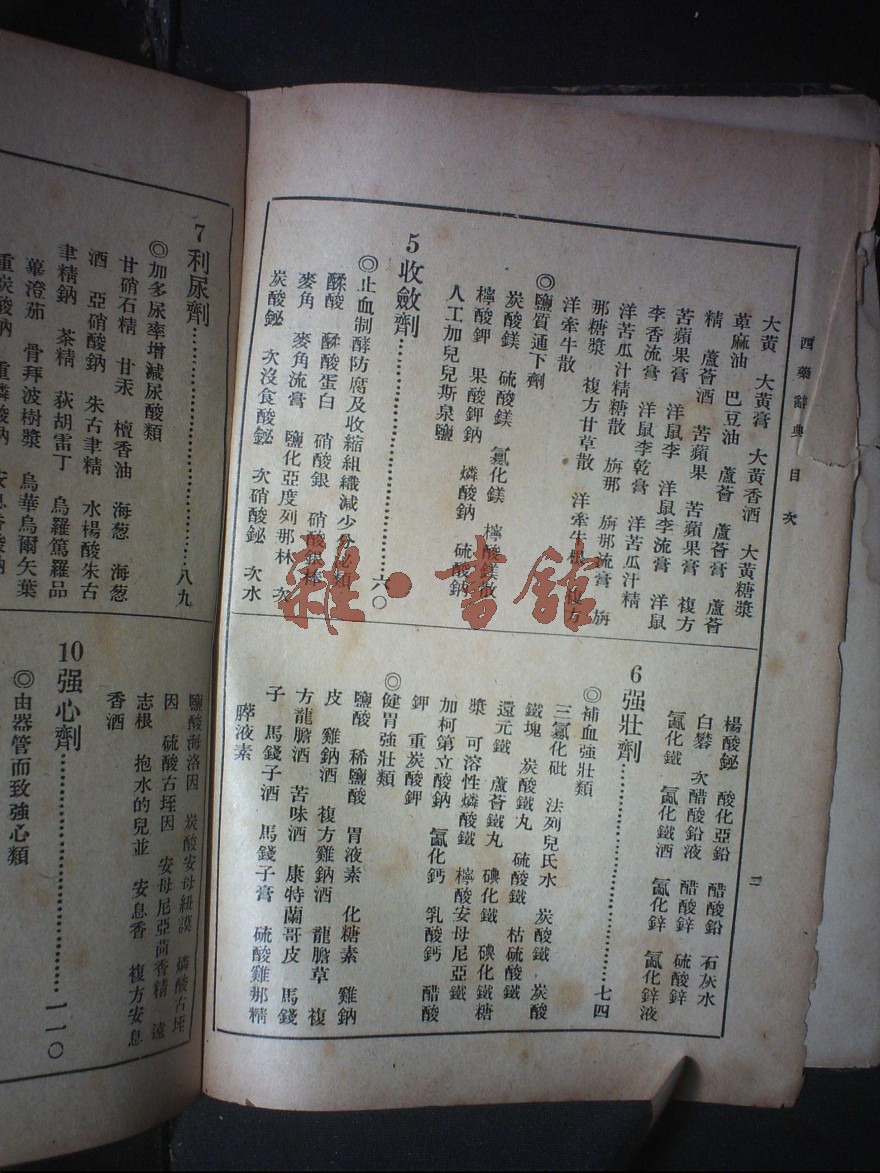 西藥辭典目次
二
大黃 大黃膏 大黃香酒 大黃糖漿
蓖麻油 巴豆油 蘆薈 蘆薈膏 蘆薈
精 蘆薈酒 苦蘋果 苦蘋果膏 複方
苦蘋果膏 洋鼠李 洋鼠李流膏 洋鼠
李香流膏 洋鼠李乾膏 洋苦瓜汁精
洋苦瓜汁精糖散 旃那 旃那流膏 旃
那糖漿 複方甘草散 洋牽牛根 複方
洋牽牛散
◎鹽質通下劑
炭酸鎂 硫酸鎂 氯化鎂 檸酸鎂散
檸酸鉀 果酸鉀鈉 燐酸鈉 硫酸鈉
人工加兒兒斯泉鹽
5 收斂劑…………六〇
◎止血制酵防腐及收縮組織減少分泌類
鞣酸 鞣酸蛋白 硝酸銀 硝酸銀棒
麥角 麥角流膏 鹽化亞度列那林 次
炭酸鉍 次沒食酸鉍 次硝酸鉍 次水
楊酸鉍 酸化亞鉛 醋酸鉛 石灰水
白礬 次醋酸鉛液 醋酸鋅 硫酸鋅
氯化鐵 氯化鐵酒 氯化鋅 氯化鋅液
6 强壯劑…………七四
◎補血強壯類
三氯化砒 法列兒氏水 炭酸鐵 炭酸
鐵塊 炭酸鐵丸 硫酸鐵 枯硫酸鐵
還元鐵 蘆薈鐵丸 碘化鐵 碘化鐵糖
漿 可溶性燐酸鐵 檸酸安母尼亞鐵
加柯第立酸鈉 氯化鈣 乳酸鈣 醋酸
鉀 重炭酸鉀
◎健胃强壯類
鹽酸 稀鹽酸 胃液素 化糖素 雞鈉
皮 雞鈉酒 複方雞鈉酒 龍膽草 複
方龍膽酒 苦味酒 康特蘭哥皮 馬錢
子 馬錢子酒 馬錢子膏 硫酸雞那精
膵液素
7 利尿劑…………八九
◎加多尿率增減尿酸類
甘硝石精 甘汞 檀香油 海葱 海葱
酒 亞硝酸鈉 朱古聿精 水楊酸朱古
聿精鈉 茶精 荻胡雷丁 烏羅篤羅品
蓽澄茄 骨拜波樹漿 烏華烏爾矢葉
重炭酸鈉 重燐酸鈉 安息香酸鈉
鹽酸海洛因 炭酸安母紐謨 燐酸古垤
因 硫酸古垤因 安母尼亞茴香精 遠
志根 抱水的兒並 安息香 複方安息
香酒
10 强心劑…………一一〇
◎由器管而致強心類
雜·書館